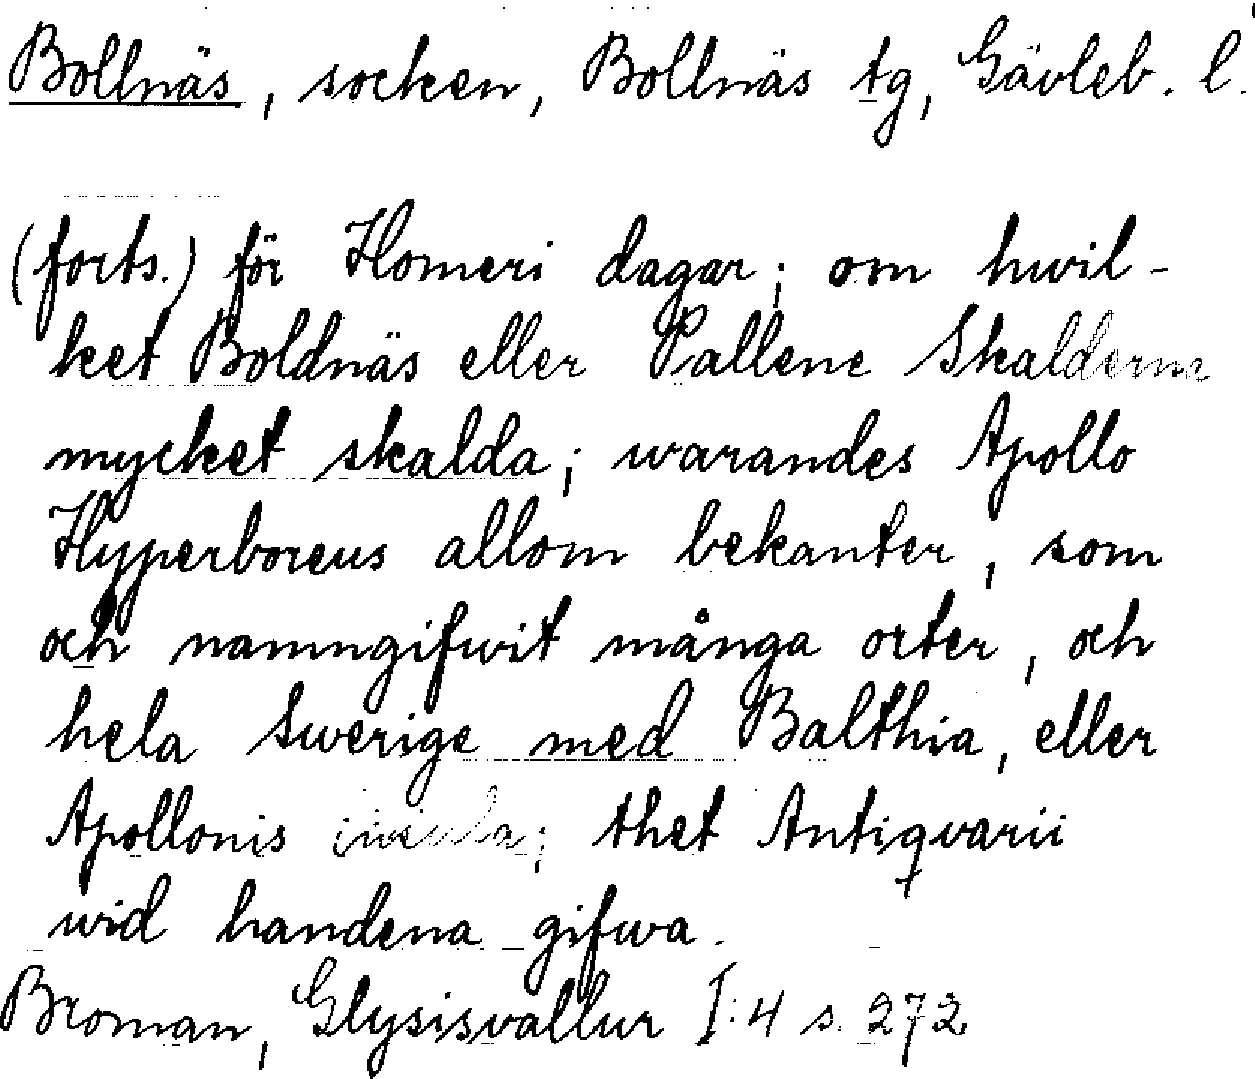 Bollnäs, socken, Bollnäs tg, Gävleb. l.
(forts.) för Homeri dagar; om hwil-
ket Boldnäs eller Pallene Skalderne
mycket skalda; warandes Apollo
Hyperboreus allom bekanter, som
och namngifwit många orter, och
hela Swerige med Balthia, eller
Apollonis insula; thet Antiqvarii
wid handena gifwa.
Broman, Glysisvallur I:4 s. 272